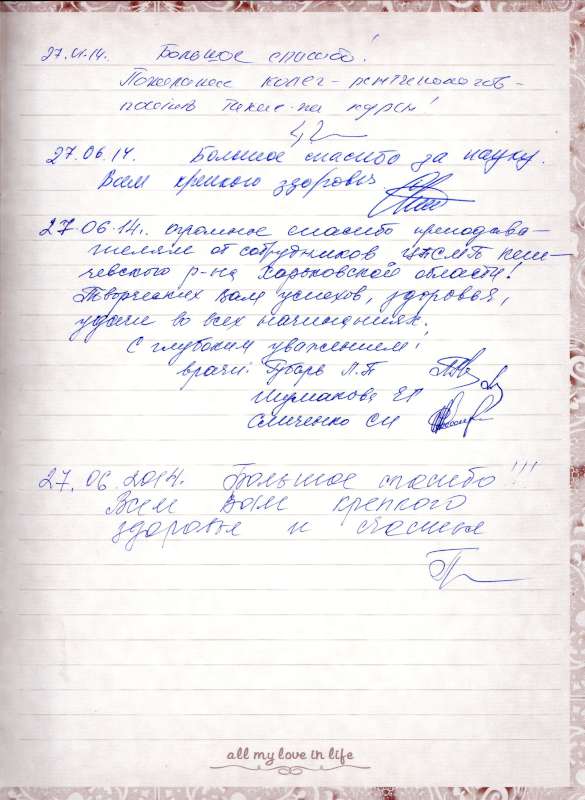 27.VI.14. Большое спасибо!
колег - рентгенологов -
такие на курсы!
27.06.14. Большое спасибо за науку.
Всем крепкого здоровья
27.06.14. огромное спасибо преподава-
телям от сотрудников ЦПСМП
чевского р-на Харьковской области!
Творческих Вам успехов, здоровья,
удачи во всех начинаниях.
С глубоким уважением!
врачи: Губарь Л.П
Шумакова ЕП
Сличенко СИ
27.06.2014. Большое спасибо!!!
Всем Вам крепкого
здоровья и счастья
all my love in life